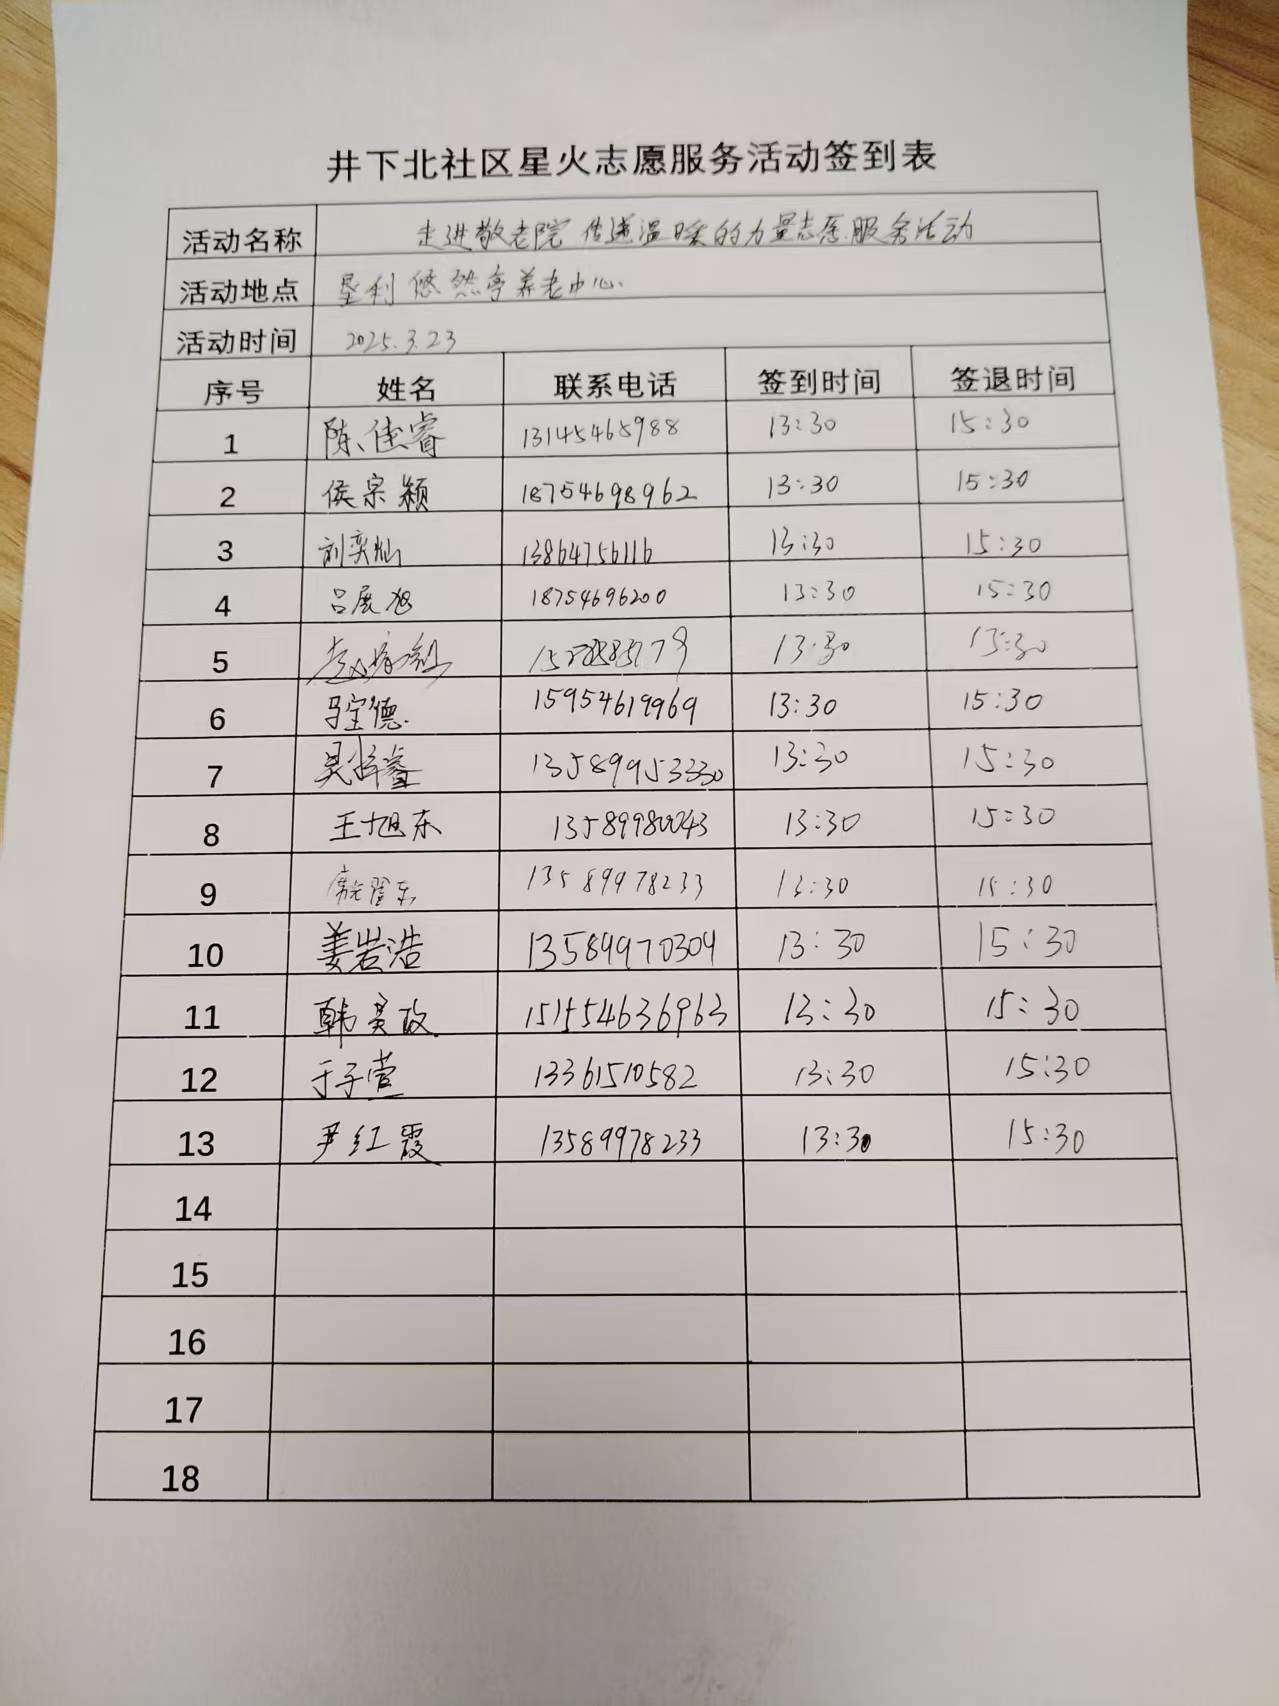 井下北社区星火志愿服务活动签到表
活动名称 走进敬老院 传递温暖的力量志愿服务活动
活动地点 垦利悠然亭养老中心.
活动时间 2025.3.23
序号 姓名 联系电话 签到时间 签退时间
1 陈佳睿 13145465988 13:30 15:30
2 侯宗颖 18754698962 13:30 15:30
3 刘奕灿 13864756116 13:30 15:30
4 吕展旭 18754696200 13:30 15:30
5 13:30 15:30
6 马宝德. 15954619969 13:30 15:30
7 吴梓睿 135899953330 13:30 15:30
8 王旭东 13589980043 13:30 15:30
9 13589978233 13:30 15:30
10 姜岩浩 13589970304 13:30 15:30
11 韩奕政 13:30 15:30
12 于子萱 13361510582 13:30 15:30
13 尹红霞 13589978233 13:30 15:30
14
15
16
17
18